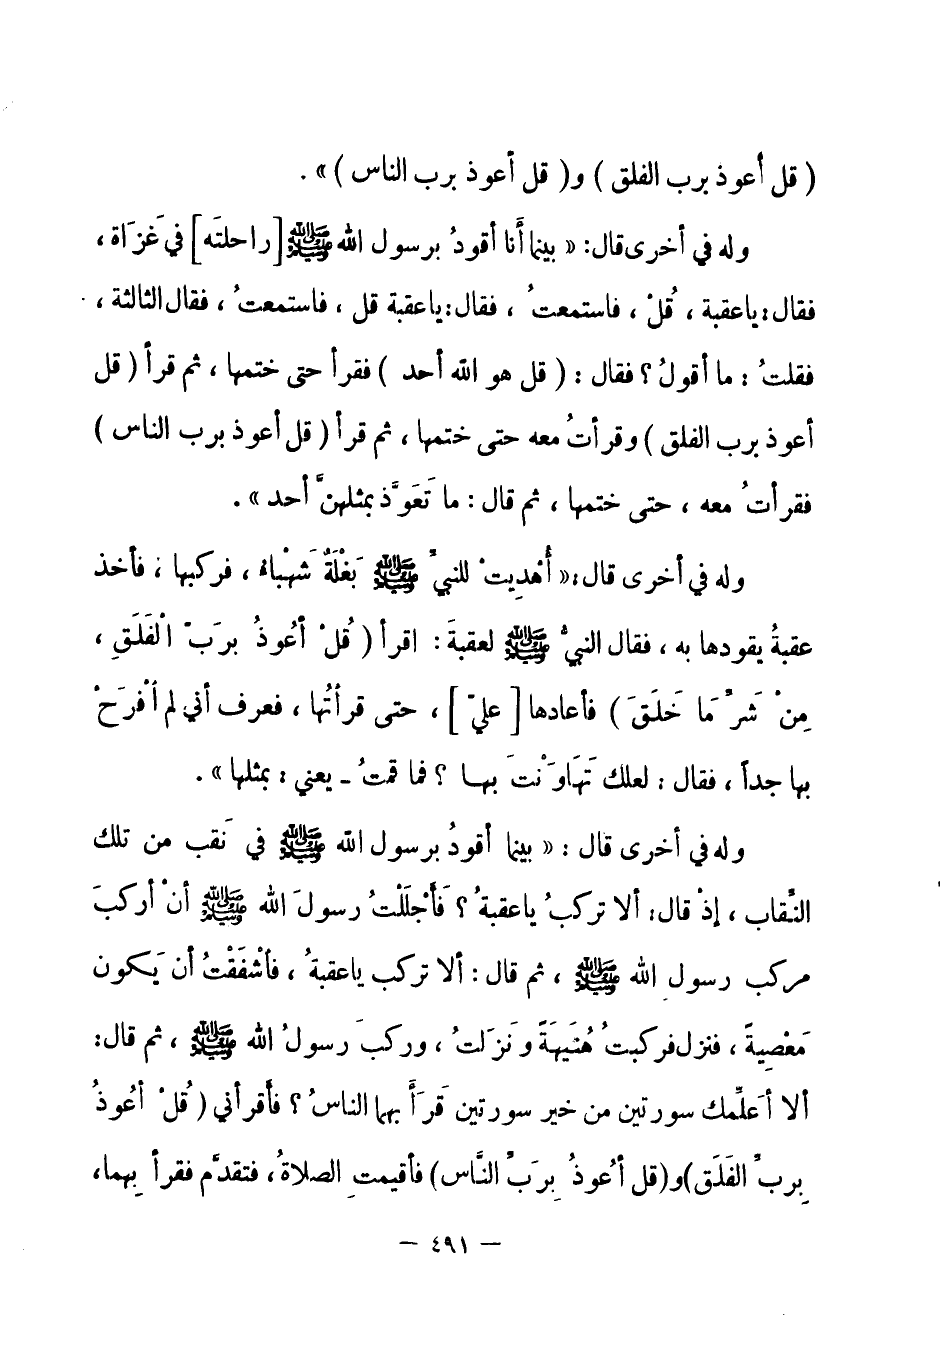 ( قل أعوذ برب الفلق ) و( قل أعوذ برب الناس ) » .
وله في أخرى قال: « بينما أنا أقودُ برسول الله ﷺ [راحلتَه] في غَزَاة ،
فقال: ياعقبة ، قُلْ ، فاستمعتُ ، فقال: ياعقبة قل ، فاستمعتُ ، فقال الثالثة ،
فقلتُ : ما أقولُ ؟ فقال : ( قل هو الله أحد ) فقرأ حتى ختمها ، ثم قرأ ( قل
أعوذ برب الفلق ) وقرأتُ معه حتى ختمها ، ثم قرأ ( قل أعوذ برب الناس )
فقرأتُ معه ، حتى ختمها ، ثم قال : ما تَعَوَّذ بمثلهنَّ أحد » .
وله في أخرى قال: « أُهْدِيتْ للنبيِّ ﷺ بَغْلَةٌ شَهْباء ، فركبها ، فأخذ
عقبةُ يقودها به ، فقال النبيُّ ﷺ لعقبةَ : اقرأ ( قُلْ أعُوذُ برَبِّ الْفَلَقِ ،
مِنْ شَرِّ مَا خَلَقَ ) فأعادها [ عليَّ ] ، حتى قرأتُها ، فعرف أني لم أفْرَحْ
بها جداً ، فقال : لعلك تَهَاوَنْتَ بهـا ؟ فما قمتُ ـ يعني : بمثلها » .
وله في أخرى قال : « بينما أقودُ برسول الله ﷺ في نَقب من تلك
النِّقاب ، إذْ قال: ألا تركبُ ياعقبةُ ؟ فَأَجْلَلْتُ رسولَ الله ﷺ أنْ أركبَ
مركب رسولِ الله ﷺ ، ثم قال : ألا تركب ياعقبةُ ، فأشْفَقْتُ أن يَكون
مَعْصِيةً ، فنزل فركبتُ هُنَيهَةً ونَزَلتُ ، وركبَ رسولُ الله ﷺ ، ثم قال:
ألا أعَلِّمك سورتين من خير سورتين قَرَأَ بهما الناسُ ؟ فأقرأني ( قُلْ أعُوذُ
بِربِّ الفَلَق)و(قل أعُوذُ بِرَبِّ النَّاس) فأقيمتِ الصلاةُ ، فتقدَّم فقرأ بِهما،
— ٤٩١ —